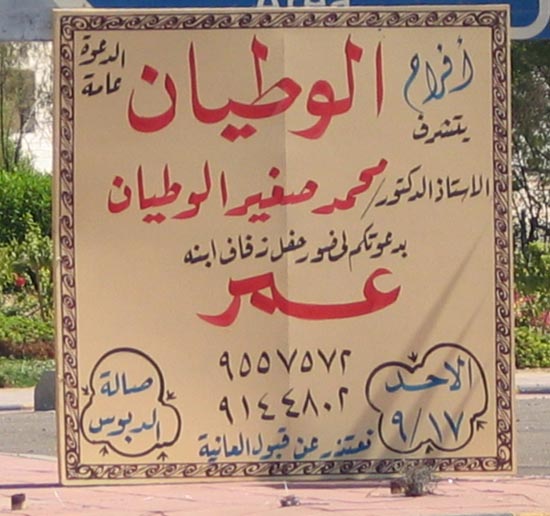 Area
أفراح الوطيان
الدعوة
عامة
يتشرف
الاستاذ الدكتور/ محمد صغير الوطيان
بدعوتكم لحضور حفل زفاف ابنه
عمر
٩٥٥٧٥٧٢
٩١٤٤٨٠٢
نعتذر عن قبول العانية
الاحد
٩/١٧
صالة
الدبوس